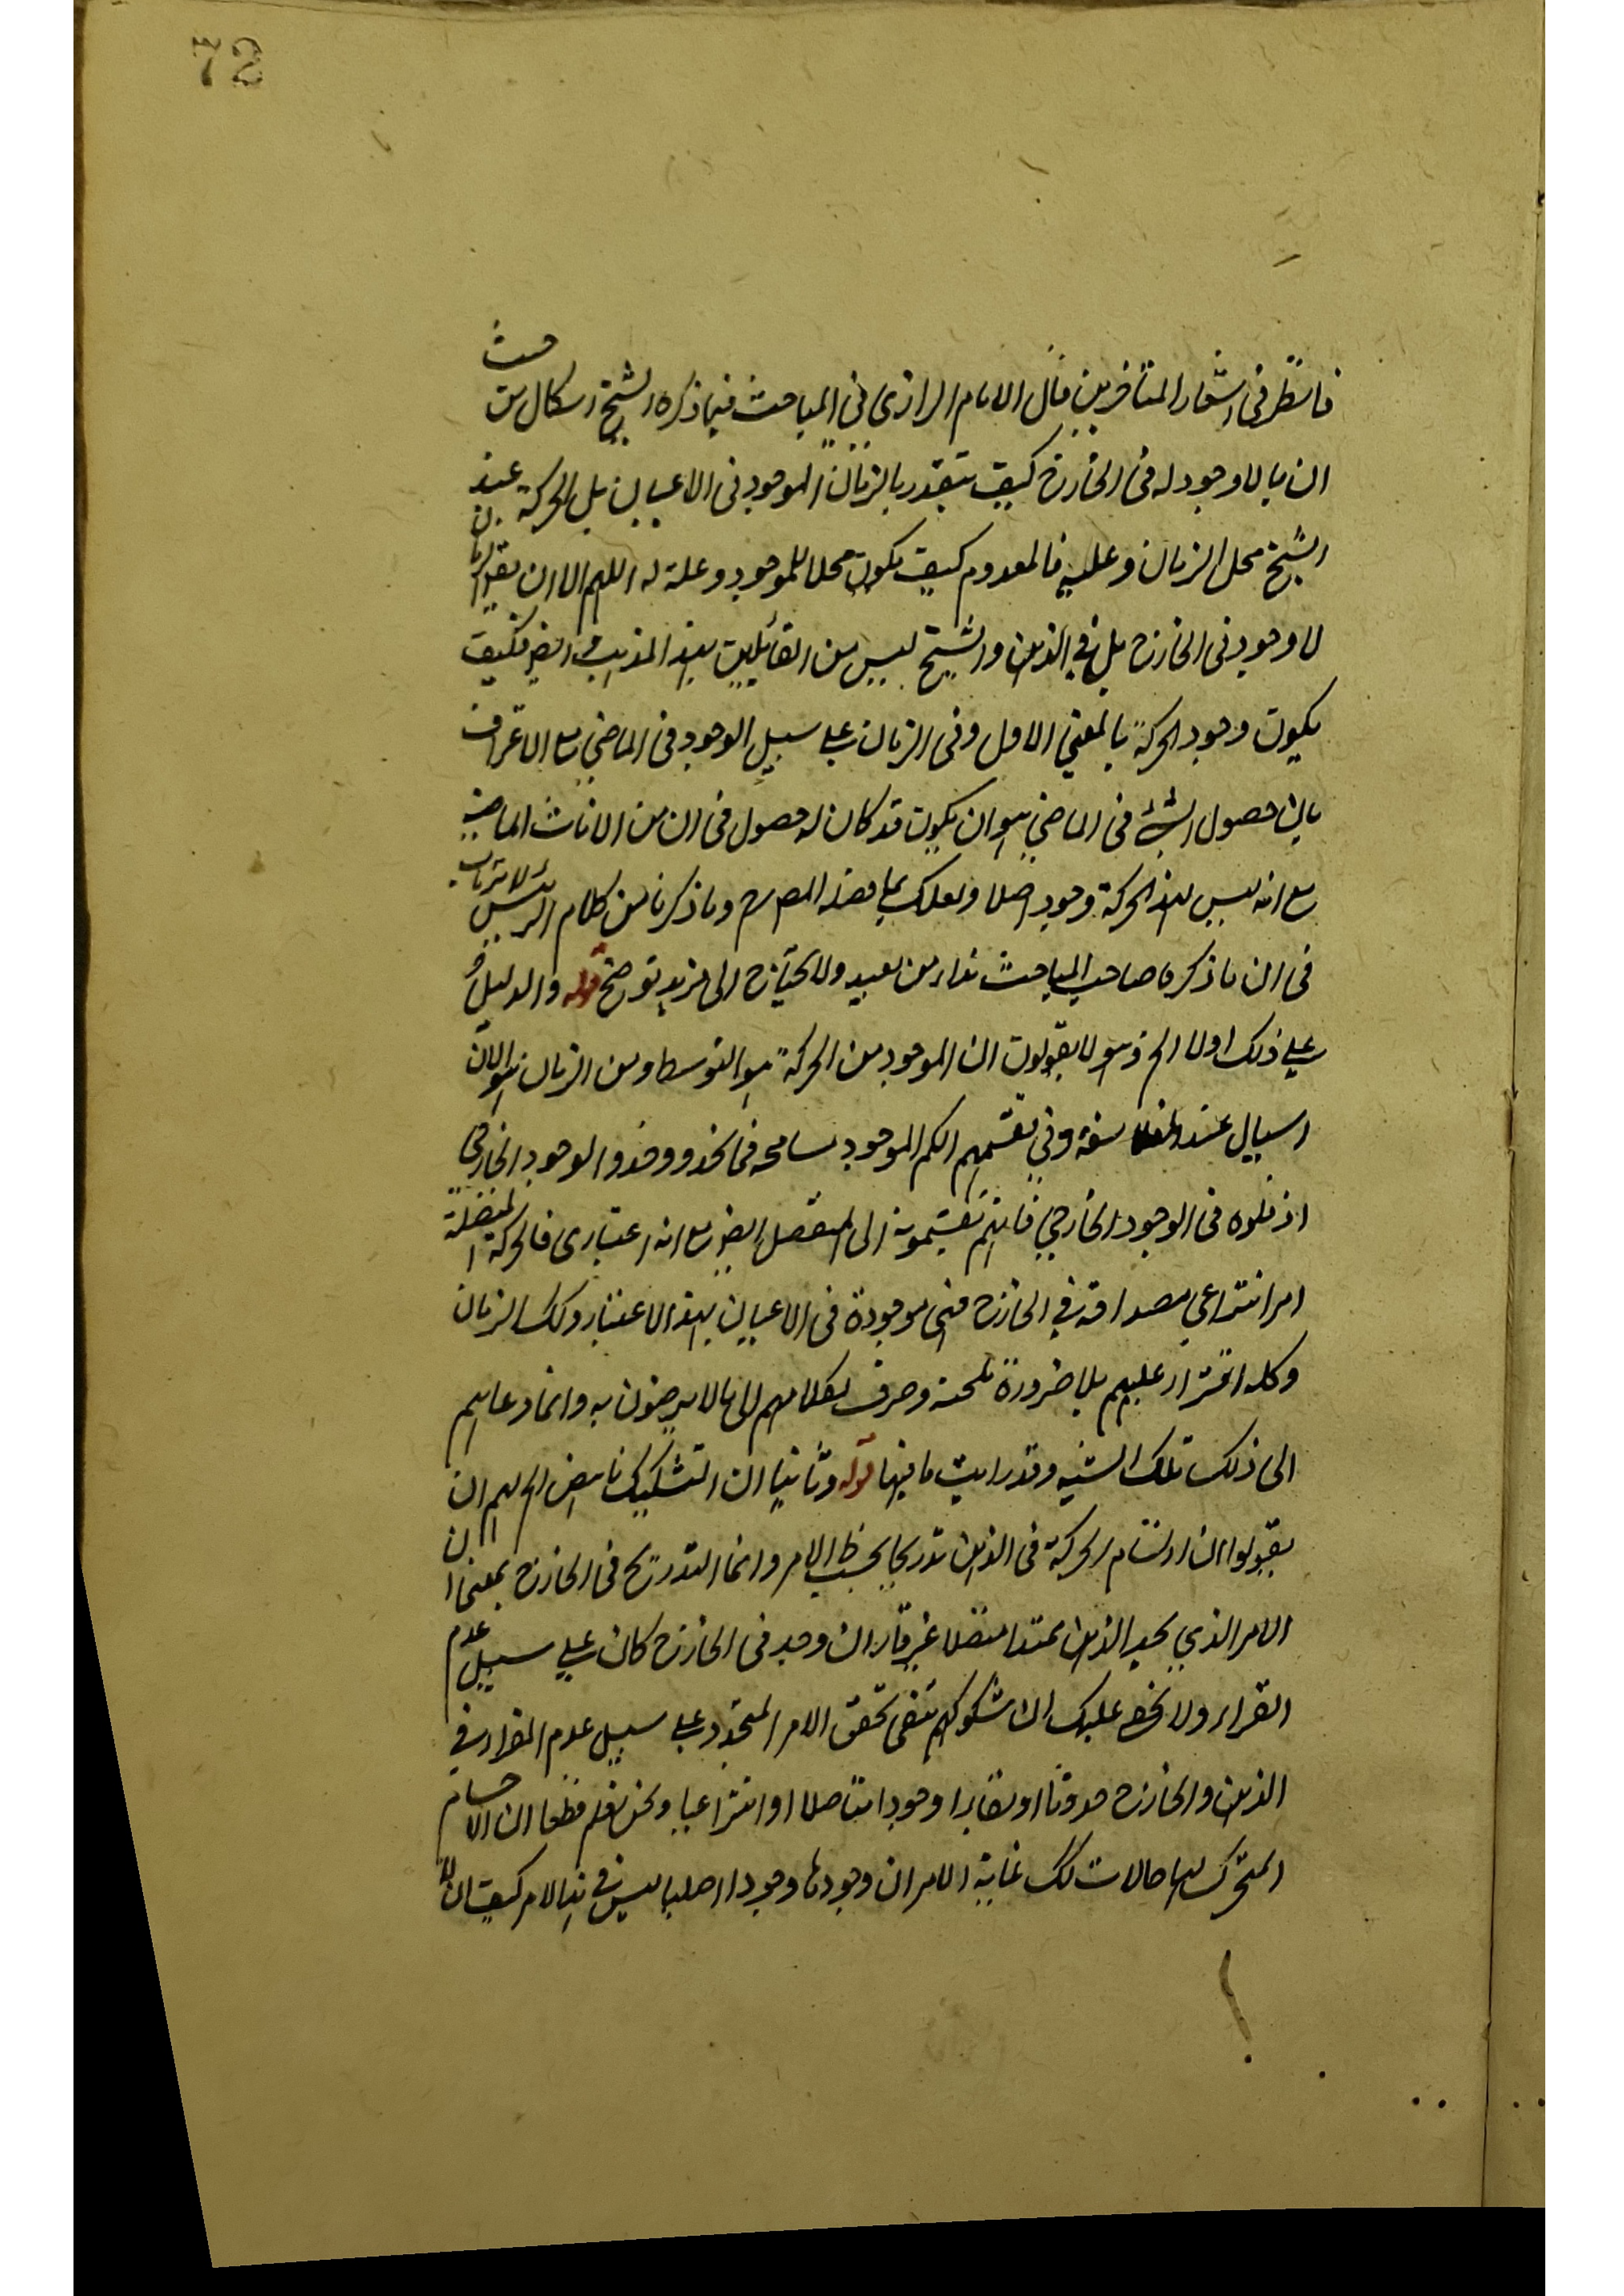 72
فانظر فى اشعار المتاخرين قال الامام الرازى فى المباحث فيما ذكره الشيخ اشكال من حيث
ان ما لا وجود له فى الخارج كيف يتقدر بالزمان الموجود فى الاعيان بل الحركة عند
الشيخ محل الزمان و علته فالمعدوم كيف يكون محلا للموجود وعلة له اللهم الا ان يقول بان الزمان
لا وجود فى الخارج بل فى الذهن والشيخ ليس من القائلين بهذا المذهب وايضا فكيف
يكون وجود الحركة بالمعنى الاول وفى الزمان على سبيل الوجود فى الماضى مع الاعتراف
بان حصول الشئ فى الماضى هو ان يكون قد كان له حصول فى ان من الانات الماضية
مع انه ليس لهذه الحركة وجود اصلا ولعلك بما وما ذكرنا من كلام الرئيس لا ترتاب
فى ان ما ذكره صاحب المباحث نداء من بعيد ولا يحتاج الى مزيد توضيح قوله والدليل
على ذلك اولا الخ وهو لا يقولون ان الموجود من الحركة هو التوسط ومن الزمان هو الان
السيال عند الفلاسفة وفى تقسيمهم الكم الموجود مسامحة الوجود الخارجى
فى الوجود الخارجى فانهم يقسمونه الى المنفصل ايضا مع انه اعتبارى فالحركة المتصلة
امر انتزاعى مصداقه فى الخارج فهى موجودة فى الاعيان بهذا الاعتبار وكك الزمان
وكله افتراء عليهم بلا ضرورة وصرف لكلامهم الى ما لا يرضون به وانما دعاهم
الى ذلك تلك الشبه وقد رايت ما فيها قوله وثانيا ان التشكيك ناهض الخ لهم ان
يقولوا ان ارتسام الحركة فى الذهن تدريجا بحسب الامر وانما التدريج فى الخارج بمعنى ان
الامر الذي يجد الذهن ممتدا متصلا غير قار ان وجد فى الخارج كان على سبيل عدم
القرار ولا يخفى عليك ان شكوكهم تنفى تحقق الامر المتجدد على سبيل عدم القرار فى
الذهن والخارج حدوثا او بقاء وجودا متاصلا او انتزاعيا ونحن نعلم قطعا ان الاجسام
المتحرك لها حالات كك غاية الامر ان وجودها وجودا اصليا ليس فى الامر كيف